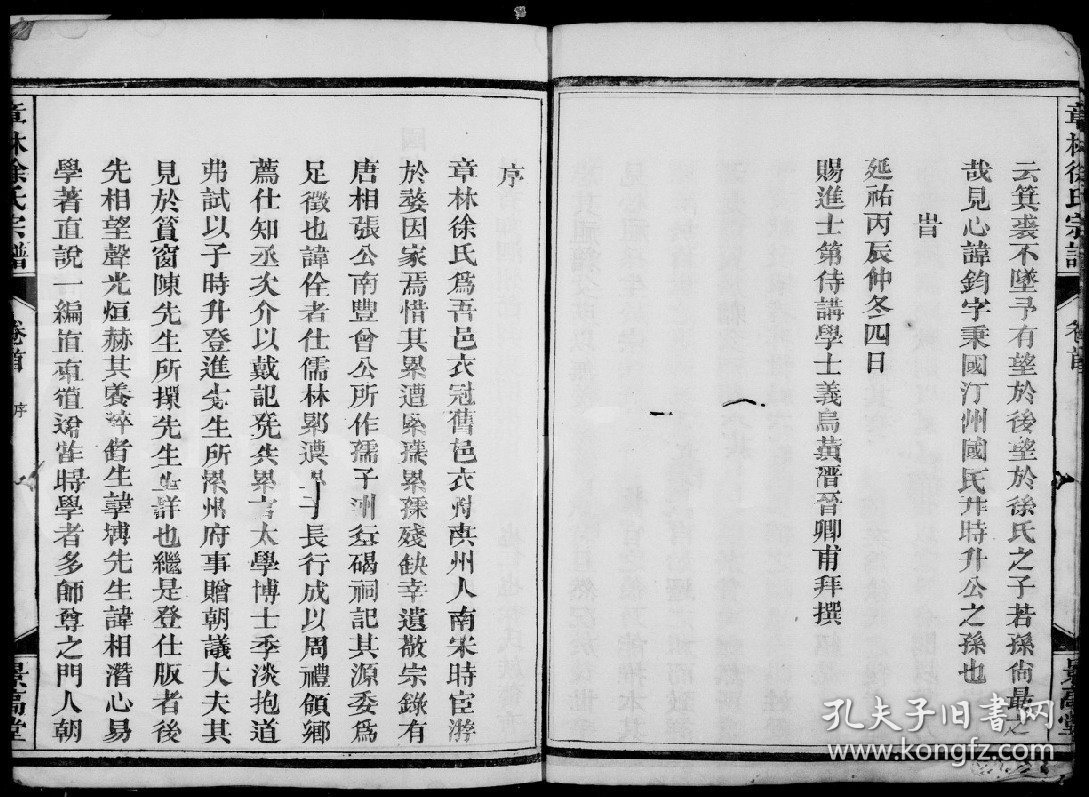 章林徐氏宗譜
卷首
景高堂
云箕裘不墜予有望於後望於徐氏之子若孫尙最之
哉見心諱鈞字秉國汀州國氏升時升公之孫也
旹
延祐丙辰仲冬四日
賜進士第侍講學士義烏黃溍晉卿甫拜撰
序
章林徐氏爲吾邑衣冠舊邑衣州人南宋時臣游
於婺因家焉惜其累遭累殘缺幸遺敝宗錄有
唐相張公南豐曾公所作孺子碣祠記其源委爲
足徵也諱佺者仕儒林郎長行成以周禮領鄉
薦仕知丞次介以戴記太學博士季淡抱道
弗試以子時升登進生所州府事贈朝議大夫其
見於篔窗陳先生所撰先生詳也繼是登仕版者後
先相望聲光烜赫其養生先生諱相潛心易
學著直說一編時學者多師尊之門人朝
章林徐氏宗譜
卷首
序
景高堂
孔夫子旧书网
www.kongfz.com